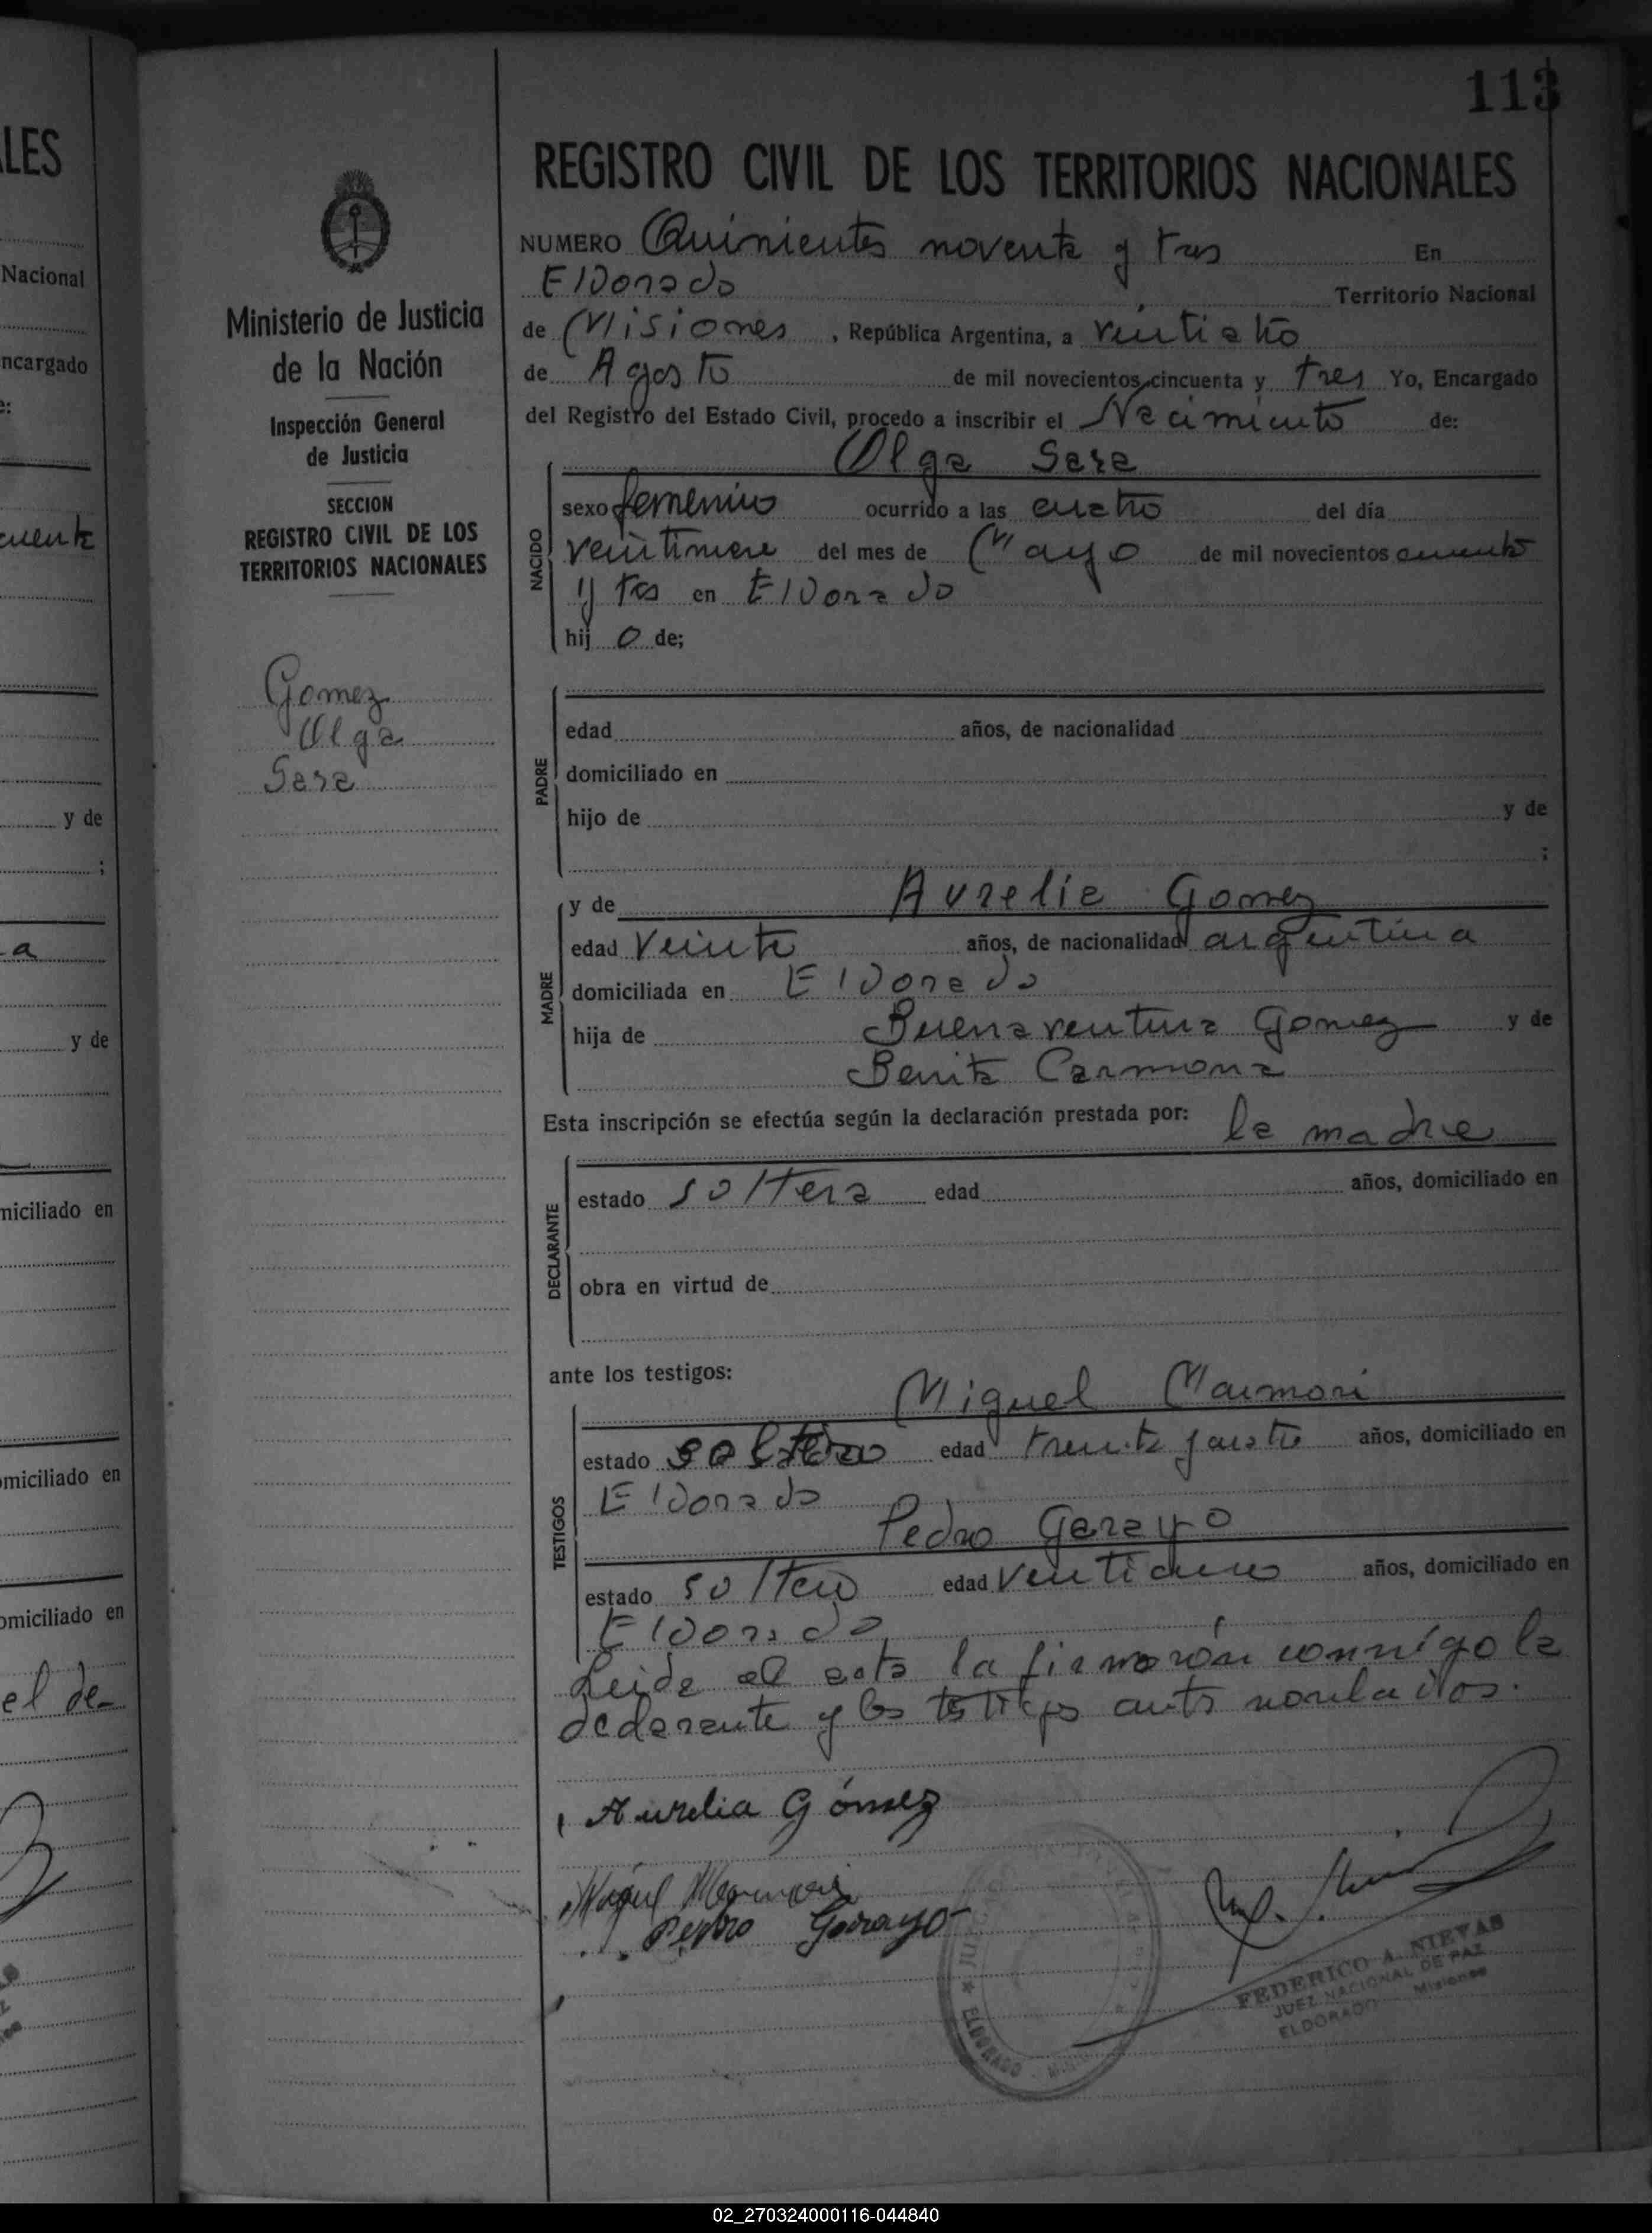 113
REGISTRO CIVIL DE LOS TERRITORIOS NACIONALES
NUMERO Quinientos noventa y tres En
ElDorado Territorio Nacional
de Misiones, República Argentina, a veintiocho
de Agosto de mil novecientos cincuenta y tres Yo, Encargado
del Registro del Estado Civil, procedo a inscribir el Nacimiento de:
Olga Sara
NACIDO
sexo femenino ocurrido a las cuatro del día
veintinueve del mes de Mayo de mil novecientos cincuenta
y tres en ElDorado
hij o de;
PADRE
edad años, de nacionalidad
domiciliado en
hijo de y de
;
MADRE
y de Aurelia Gomez
edad Veinte años, de nacionalidad argentina
domiciliada en ElDorado
hija de Buenaventura Gomez y de
Benita Carmona
Esta inscripción se efectúa según la declaración prestada por: la madre
DECLARANTE
estado soltera edad años, domiciliado en
obra en virtud de
ante los testigos:
Miguel Marmori
TESTIGOS
estado soltero edad treinta y cuatro años, domiciliado en
ElDorado
Pedro Garayo
estado soltero edad años, domiciliado en
ElDorado
Leida el acta la firmarón conmigo la
declarante y los testigos antes nombrados.
Aurelia Gómez
Miguel Marmori
Pedro Garayo
FEDERICO A. NIEVAS
JUEZ NACIONAL DE PAZ
ELDORADO Misiones
ELDORADO
Ministerio de Justicia
de la Nación
Inspección General
de Justicia
SECCION
REGISTRO CIVIL DE LOS
TERRITORIOS NACIONALES
Gomez
Olga
Sara
LES
Nacional
ncargado
e:
cuenta
y de
;
a
y de
miciliado en
omiciliado en
omiciliado en
el de-
02_270324000116-044840